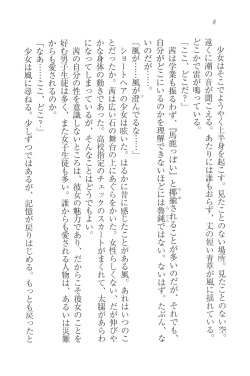 8
少女はそこでようやく上半身を起こす。見たことのない場所。見たことのない空。
遠くに潮の音が聞こえる。あたりには誰もおらず、丈の短い青草が風に揺れている。
どこかで雷が鳴っている。
「ここ、どこだ？」
茜は学業も振るわず、『馬鹿っぽい』と揶揄されることが多いのだが、それでも、
自分がどこにいるのかを理解できないほどには魯鈍ではない。ないはず。たぶん、な
いのだが……。
「風が……風が澄んでるな……」
ショートヘアの少女は呟いた。はるかに昔に感じたことがある風。あれはいつのこ
とだったか。茜は広い石の舞台の上にあぐらをかいた。女性らしくない、だが伸びや
かな身体の動きであった。高校指定のチェックのスカートがまくれて、太腿があらわ
になってしまっているが、そんなことはどうでもいい。
茜の自分の性を意識しないところは、彼女の魅力であり、だから彼女のことを
好む男子生徒は多く、また女子生徒も多い。誰からも愛される人物は、あるいは災難
からも愛されるのか。
「なあ……ここ、どこ？」
少女は風に尋ねる。少しずつではあるが、記憶が戻りはじめる。もっとも戻ったと